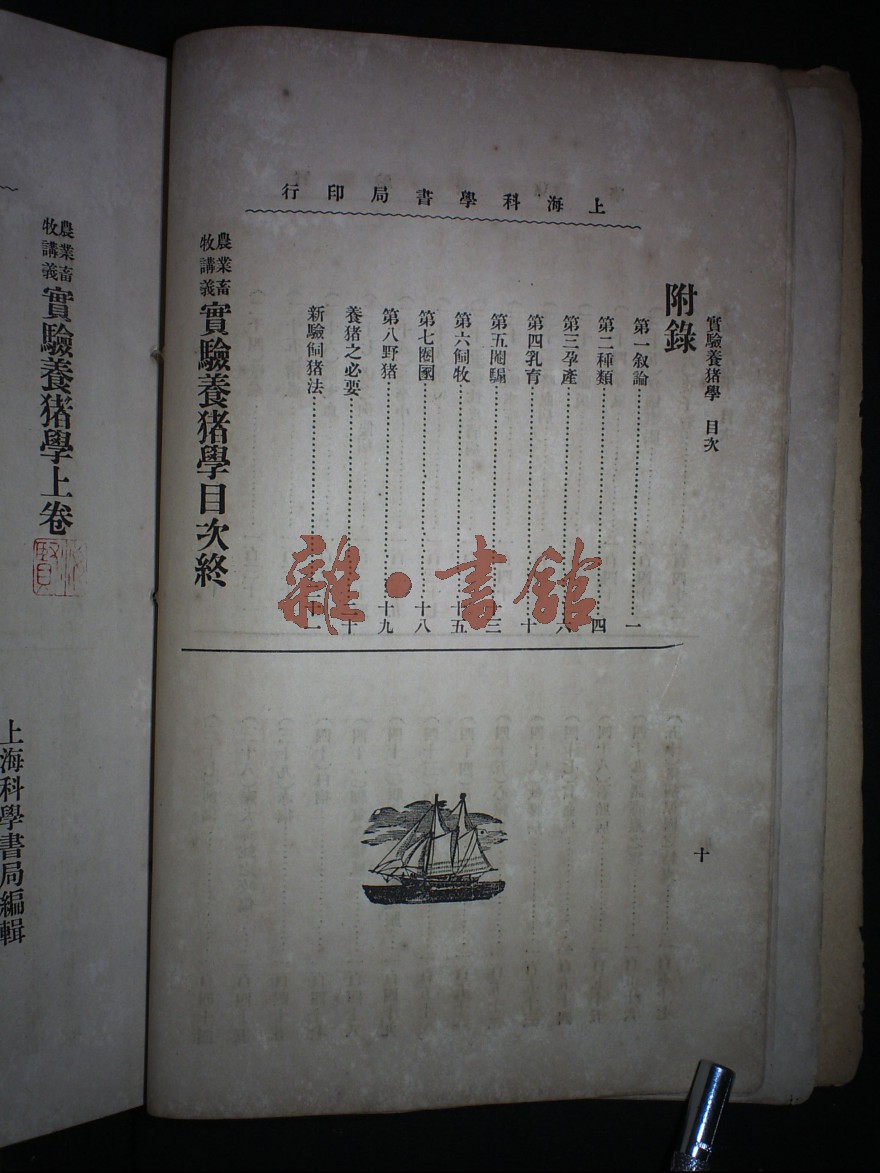 上海科學書局印行
實驗養猪學 目次
十
附錄
第一叙論……一
第二種類……四
第三孕產……六
第四乳育……十
第五閹騸……十三
第六飼牧……十五
第七圈圂……十八
第八野猪……十九
養猪之必要……十
新驗飼猪法……十一
農業畜牧講義 實驗養猪學目次終
農業畜牧講義 實驗養猪學上卷
上海科學書局編輯
雜·書館